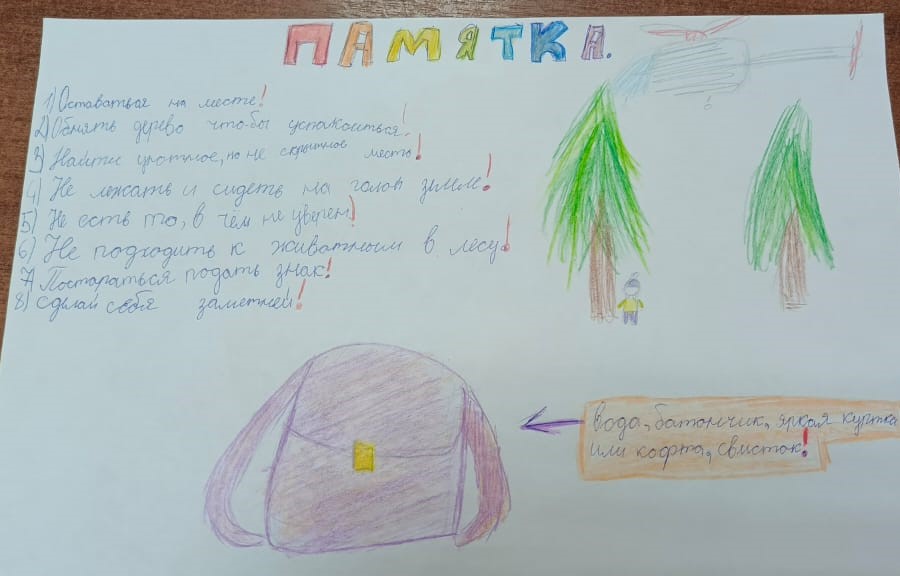 ПАМЯТКА.
1) Оставаться на месте!
2) Обнять дерево что-бы успокоиться!
3) Найти уютное, но не скрытное место!
4) Не лежать и сидеть на голой земле!
5) Не есть то, в чём не уверен!
6) Не подходить к животным в лесу!
7) Постараться подать знак!
8) Сделай себя заметней!
вода, батончик, яркая куртка
или кофта, свисток!